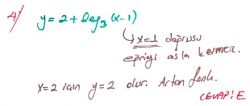 4) y = 2 + log₃(x-1)
x=1 doğrusu
eğriyi asla kesmez.
x=2 için y=2 olur. Artan fonk.
CEVAP: E